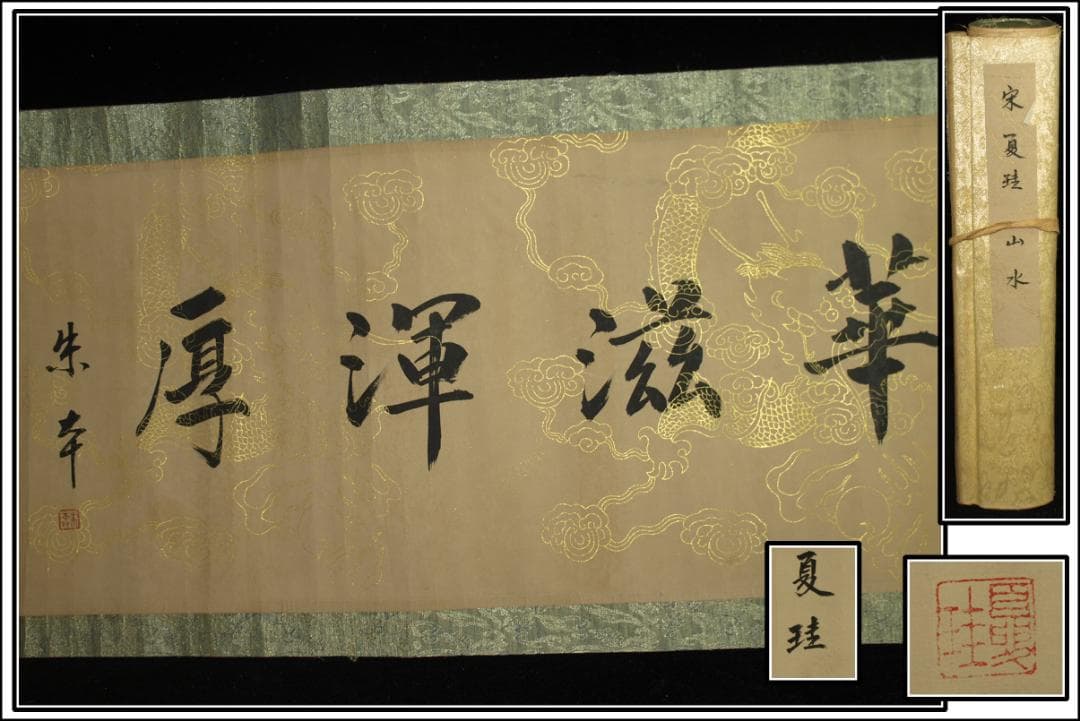 華滋渾厚
朱本
宋 夏珪 山水
夏珪
夏珪